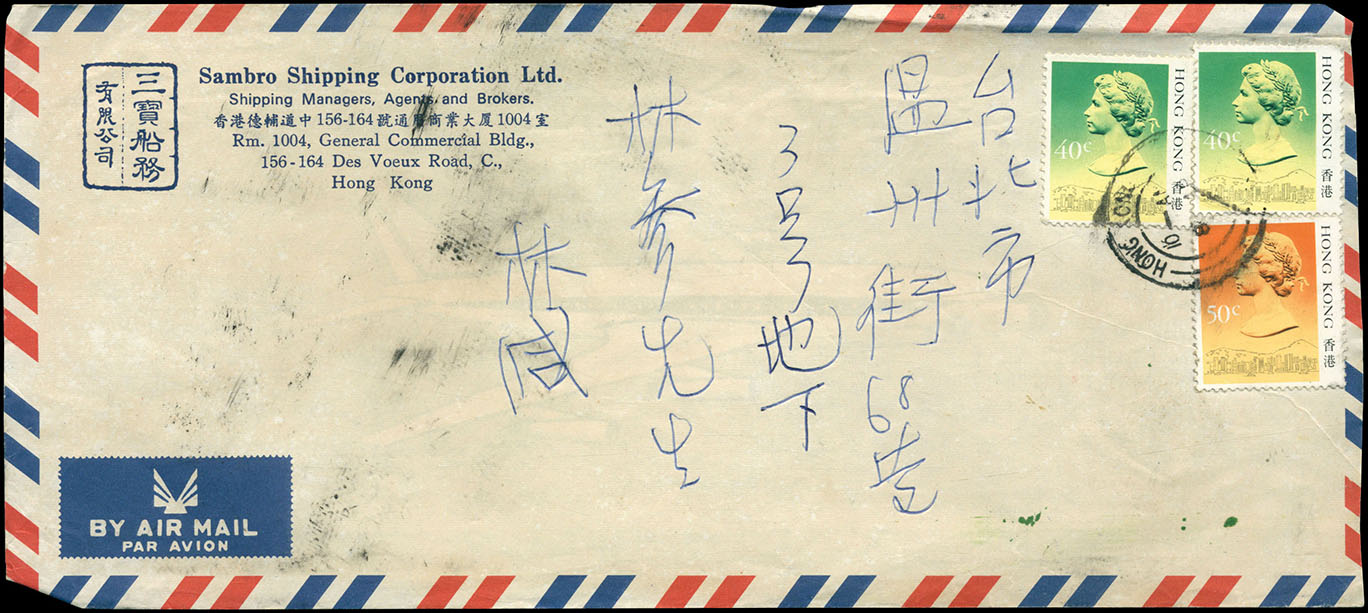 三寶船務
有限公司
Sambro Shipping Corporation Ltd.
Shipping Managers, Agents and Brokers.
香港德輔道中 156-164 號通用商業大厦 1004 室
Rm. 1004, General Commercial Bldg.,
156-164 Des Voeux Road, C.,
Hong Kong
台北市
温州街68巷
3号地下
林参先生
林
40c
HONG KONG 香港
40c
HONG KONG 香港
50c
HONG KONG 香港
HONG
BY AIR MAIL
PAR AVION